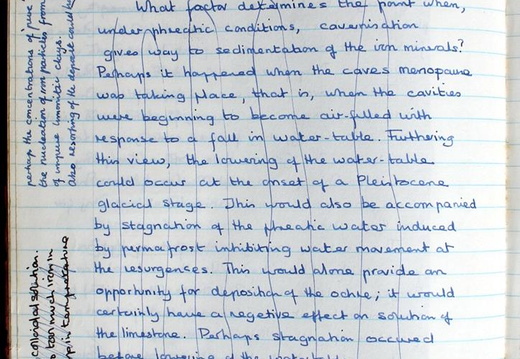 What factor determines the point when,
under phreatic conditions, cavernisation
gives way to sedimentation of the iron minerals?
Perhaps it happened when the caves menopause
was taking place, that is, when the cavities
were beginning to become air-filled with
response to a fall in water-table. Furthering
this view, the lowering of the water-table
could occur at the onset of a Pleistocene
glacial stage. This would also be accompanied
by stagnation of the phreatic water induced
by permafrost inhibiting water movement at
the resurgences. This would alone provide an
opportunity for deposition of the ochre; it would
certainly have a negetive effect on solution of
the limestone. Perhaps stagnation occured
before lowering of the water table
perhaps the concentrations of pure
the nucleation of iron particles from
of impure limonitic clays.
also resorting of the deposits could
colloidal solution.
too much iron in